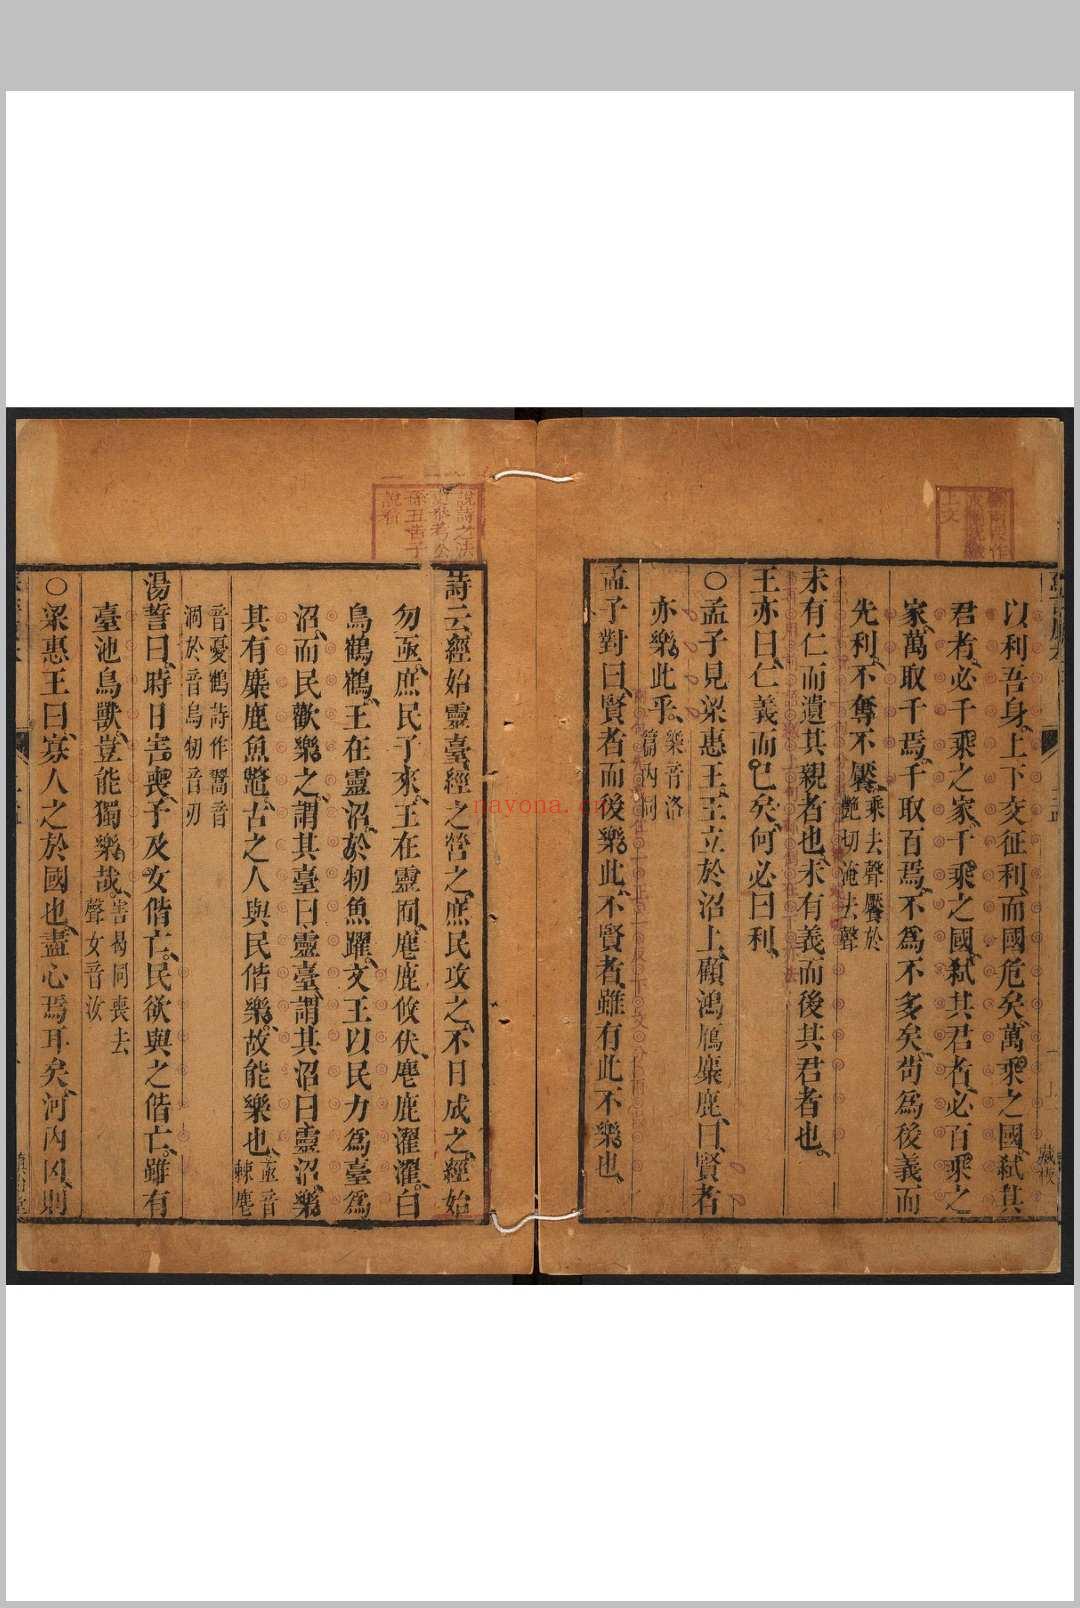 以利吾身上下交征利而國危矣萬乘之國弑其
君者必千乘之家千乘之國弑其君者必百乘之
家萬取千焉千取百焉不爲不多矣茍爲後義而
先利不奪不饜乘去聲饜於
艷切淹去聲
未有仁而遺其親者也未有義而後其君者也
王亦曰仁義而已矣何必曰利
○孟子見梁惠王王立於沼上顧鴻鴈麋鹿曰賢者
亦樂此乎樂音洛
篇內同
孟子對曰賢者而後樂此不賢者雖有此不樂也
藏板
說詩之法
詩云經始靈臺經之營之庶民攻之不日成之經始
勿亟庶民子來王在靈囿麀鹿攸伏麀鹿濯濯白
鳥鶴鶴王在靈沼於牣魚躍文王以民力爲臺爲
沼而民歡樂之謂其臺曰靈臺謂其沼曰靈沼樂
其有麋鹿魚鼈古之人與民偕樂故能樂也亟音
棘麀
音憂鶴詩作翯音
涸於音烏牣音刃
湯誓曰時日害喪予及女偕亡民欲與之偕亡雖有
臺池鳥獸豈能獨樂哉害曷同喪去
聲女音汝
○梁惠王曰寡人之於國也盡心焉耳矣河內凶則
nayona.cn